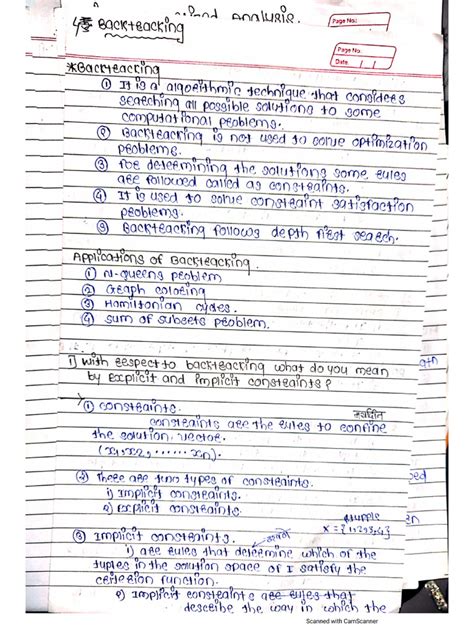 Analysis.
Page No:
Backtracking
Page No:
Date
*Backtracking
① It is a algorithmic technique that considers
searching all possible solutions to some
computational problems.
② Backtracking is not used to solve optimization
problems.
③ For determining the solutions some rules
are followed called as constraints.
④ It is used to solve constraint satisfaction
problems.
⑤ Backtracking follows depth first search.
Applications of Backtracking.
① N-queens problem
② Graph coloring
③ Hamiltonian cycles.
④ Sum of subsets problem.
1) With respect to backtracking what do you mean
by Explicit and implicit constraints?
① constraints.
constraints are the rules to confine
the solution vector.
(x1,x2,......xn).
② There are two types of constraints.
1) Implicit constraints.
2) Explicit constraints.
③ Implicit constraints.
x = {1,2,3,4}
1) are rules that determine which of the
tuples in the solution space of I satisfy the
criterion function.
2) Implicit constraints are rules that
describe the way in which the
Scanned with CamScanner